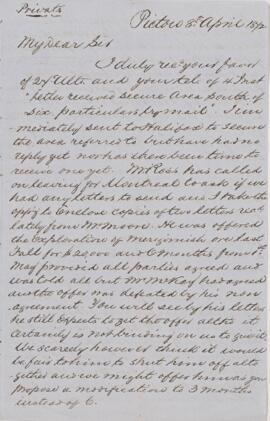 Private
Pictou 8th April 1872
My Dear Sir
I duly recd your favor
of 27 Ulto and your tel of 4 Inst
"Letter received secure area south of
six, particulars by mail". I im-
mediately sent to Halifax to secure
the area referred to but have had no
reply yet nor has there been time to
receive one yet. Mr Ross has called
on leaving for Montreal to ask if we
had any letters to send and I take the
oppty to enclose copies of two letters recd
lately from Mr Moore. He was offered
the exploration of Merigomish ore last
Fall for $2000 and 6 months from 1st
May provided all parties agreed and
was told all but Mr McKay had agreed
and the offer was defeated by his non
agreement. You will see by his letter
he still expects to get the offer altho it
certainly is not binding on us to give it
We scarcely however think it would
be fair to him to shut him off alto
gether and we might offer him was you
propose a modification to 3 months
instead of 6.